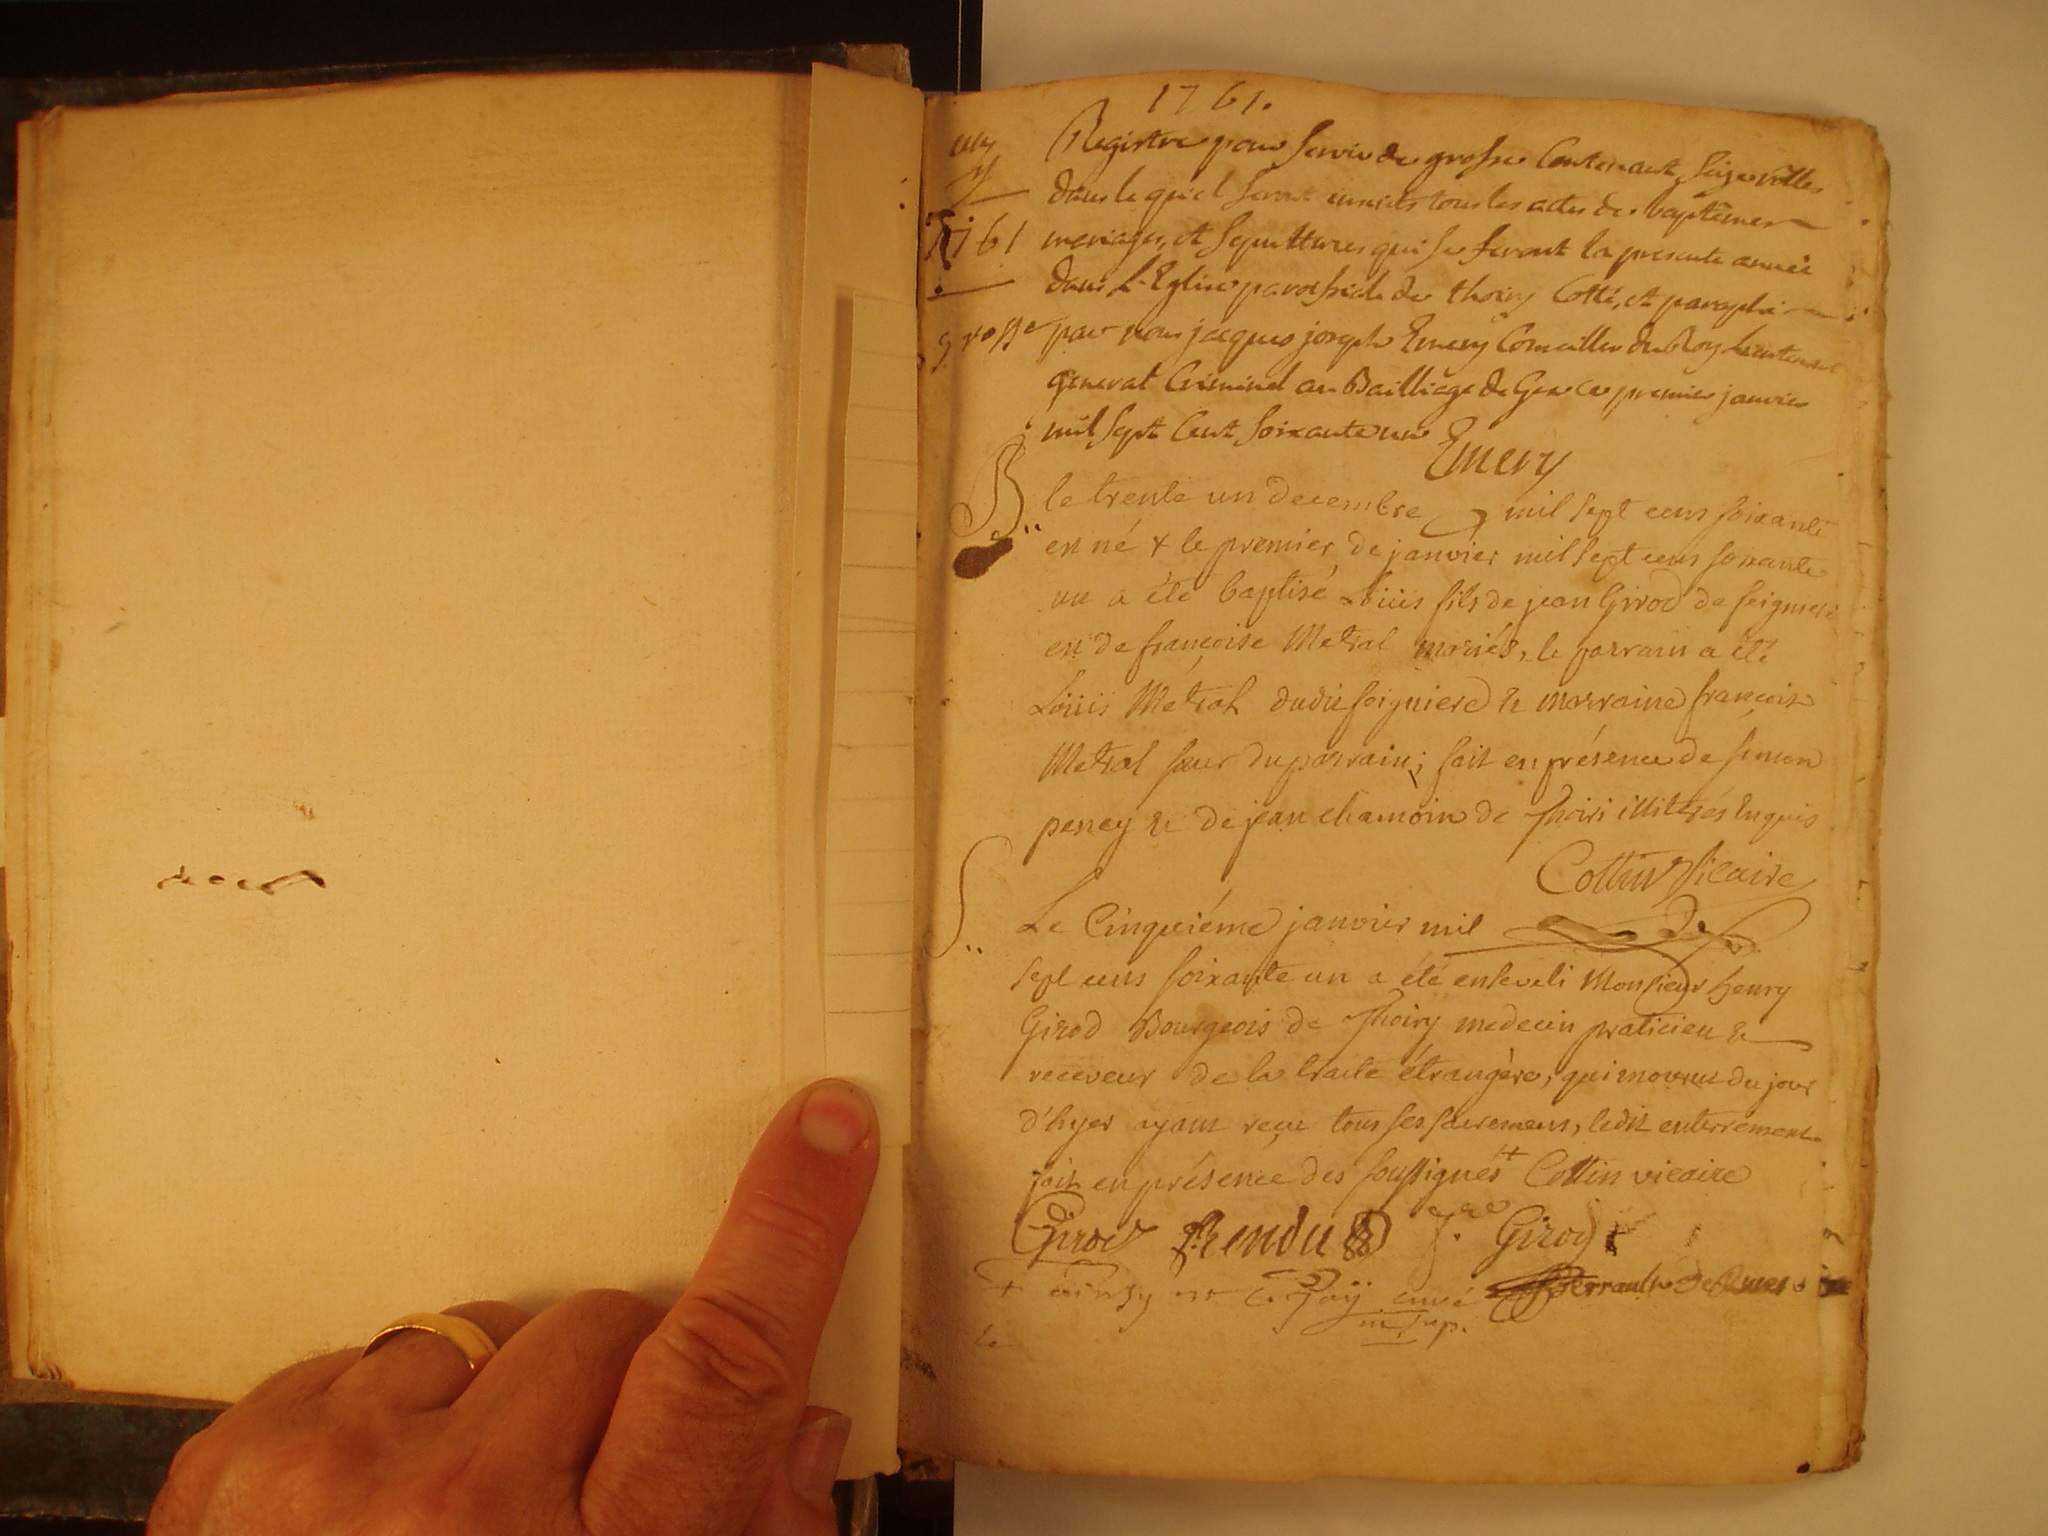 1761.
Registre pour servir de grosse Contenant Seize rolles
dans le quel seront inscrits tous les actes de baptêmes
1761
mariages, et sepultures qui se feront la presente année
dans L'Eglise paroissiale de thoiry Cotté, et paraphé
grosse
par nous jacques joseph Emery Conseiller du Roy Lieutenant
general Criminel au Bailliage de Gex ce premier janvier
mil sept Cent soixante un
Emery
B..
le trente un decembre mil sept cens soixante
est né & le premier de janvier mil sept cens soixante
un a été baptisé Loüis fils de jean Girod de feigniere
et de françoise Metral mariés, le parrain a été
Loüis Metral dudit feigniere & marraine françoise
Metral sœur du parrain; fait en présence de simon
peney & de jean chamoin de Thoiri illiterés enquis
Cottin Vicaire
S..
Le Cinquiéme janvier mil
sept cens soixante un a été enseveli Monsieur henry
Girod Bourgeois de Thoiry medecin praticien &
receveur de la traite étrangère, qui mourut du jour
d'hyer ayant reçu tous ses sacremens, ledit enterrement
fait en présence des soussignés + Cottin vicaire
Girod Rendu J. Girod
+ curé